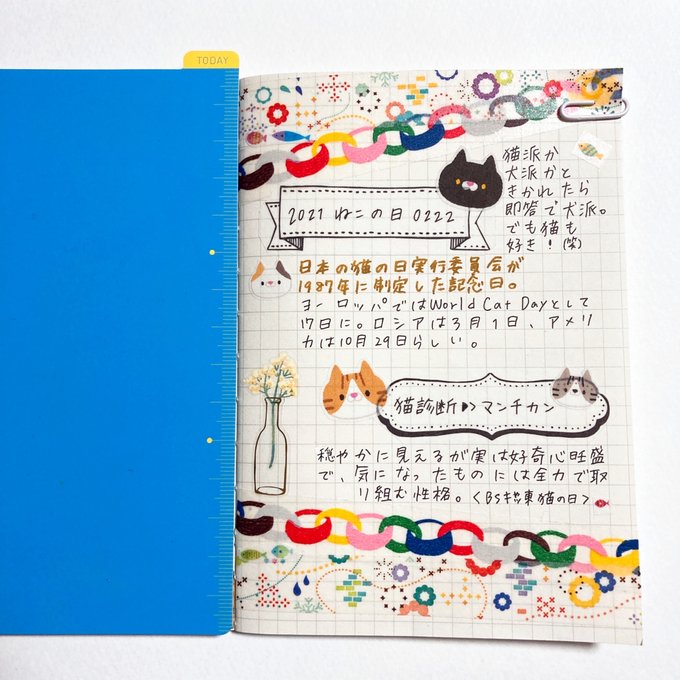 TODAY
猫派か
犬派かと
きかれたら
即答で犬派。
でも猫も
好き！(笑)
2021 ねこの日 0222
日本の猫の日実行委員会が
1987年に制定した記念日。
ヨーロッパではWorld Cat Dayとして
17日に。ロシアは3月1日、アメリ
カは10月29日らしい。
猫診断▶> マンチカン
穏やかに見えるが実は好奇心旺盛
で、気になったものには全力で取
り組む性格。